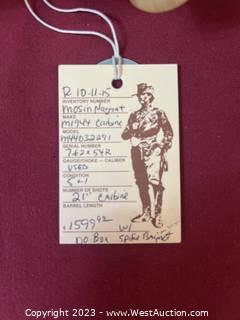 R 10-11-15
INVENTORY NUMBER
Mosin Nagant
MAKE
M1944 Carbine
MODEL
SERIAL NUMBER
7.62x54R
GAUGE/CHOKE - CALIBER
USED
CONDITION
5+1
NUMBER OF SHOTS
21" Carbine
BARREL LENGTH
$1599.92 w/
NO Box Spike Bayonet
© 2023 - www.WestAuction.com